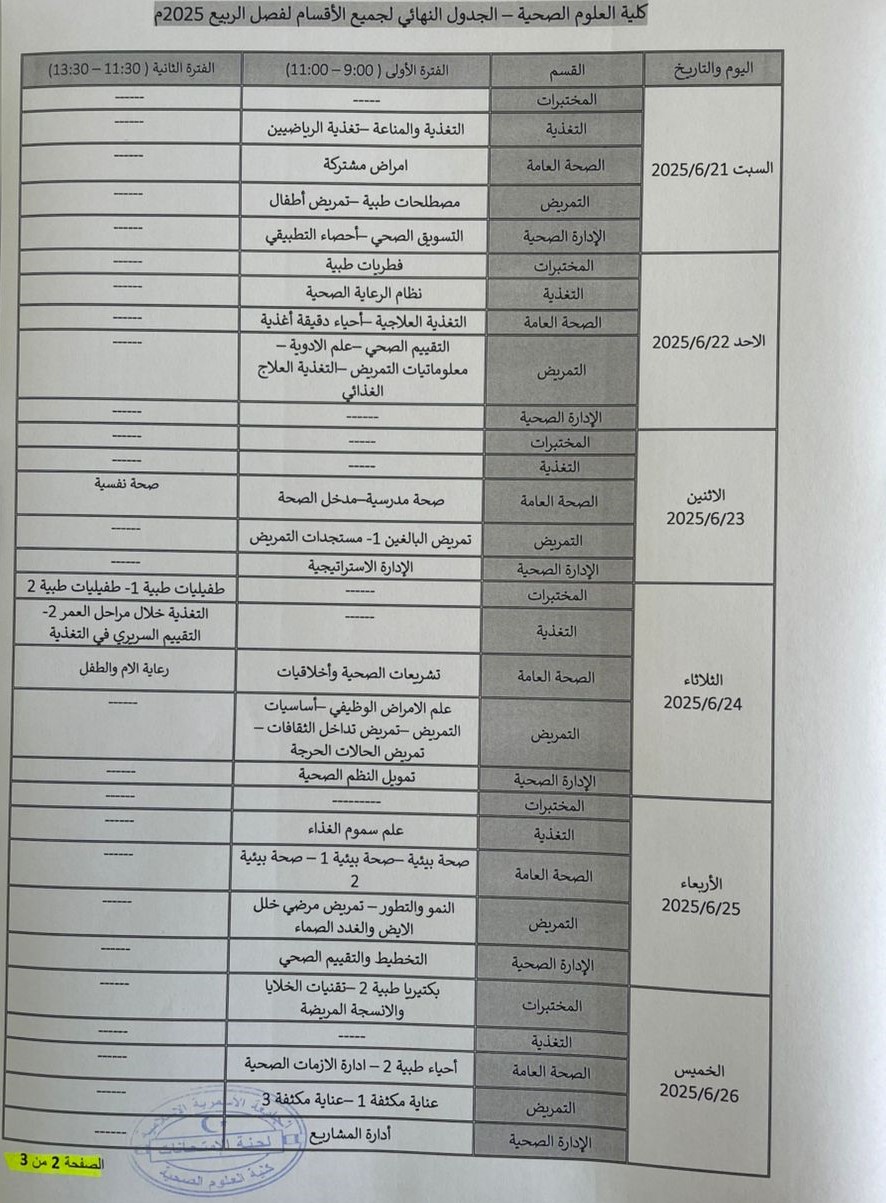 كلية العلوم الصحية – الجدول النهائي لجميع الأقسام لفصل الربيع 2025م
اليوم والتاريخ القسم الفترة الأولى ( 9:00 – 11:00) الفترة الثانية ( 11:30 – 13:30)
السبت 2025/6/21
المختبرات ----- ------
التغذية التغذية والمناعة –تغذية الرياضيين ------
الصحة العامة امراض مشتركة ------
التمريض مصطلحات طبية –تمريض أطفال ------
الإدارة الصحية التسويق الصحي –أحصاء التطبيقي ------
الاحد 2025/6/22
المختبرات فطريات طبية ------
التغذية نظام الرعاية الصحية ------
الصحة العامة التغذية العلاجية –أحياء دقيقة أغذية ------
التمريض التقييم الصحي –علم الادوية – ------
معلوماتيات التمريض –التغذية العلاج
الغذائي
الإدارة الصحية ------ ------
الاثنين
2025/6/23
المختبرات ----- ------
التغذية ----- ------
الصحة العامة صحة مدرسية–مدخل الصحة صحة نفسية
التمريض تمريض البالغين 1- مستجدات التمريض ------
الإدارة الصحية الإدارة الاستراتيجية ------
الثلاثاء
2025/6/24
المختبرات ------ طفيليات طبية 1- طفيليات طبية 2
التغذية ------ التغذية خلال مراحل العمر 2-
التقييم السريري في التغذية
الصحة العامة تشريعات الصحية وأخلاقيات رعاية الام والطفل
التمريض علم الامراض الوظيفي –أساسيات ------
التمريض –تمريض تداخل الثقافات –
تمريض الحالات الحرجة
الإدارة الصحية تمويل النظم الصحية ------
الأربعاء
2025/6/25
المختبرات --------- ------
التغذية علم سموم الغذاء ------
الصحة العامة صحة بيئية –صحة بيئية 1 – صحة بيئية ------
2
التمريض النمو والتطور – تمريض مرضي خلل ------
الايض والغدد الصماء
الإدارة الصحية التخطيط والتقييم الصحي ------
الخميس
2025/6/26
المختبرات بكتيريا طبية 2 –تقنيات الخلايا ------
والانسجة المريضة
التغذية ----- ------
الصحة العامة أحياء طبية 2 – ادارة الازمات الصحية ------
التمريض عناية مكثفة 1 –عناية مكثفة 3 ------
الإدارة الصحية أدارة المشاريع ------
لجنة الامتحانات
كلية العلوم الصحية
الصفحة 2 من 3